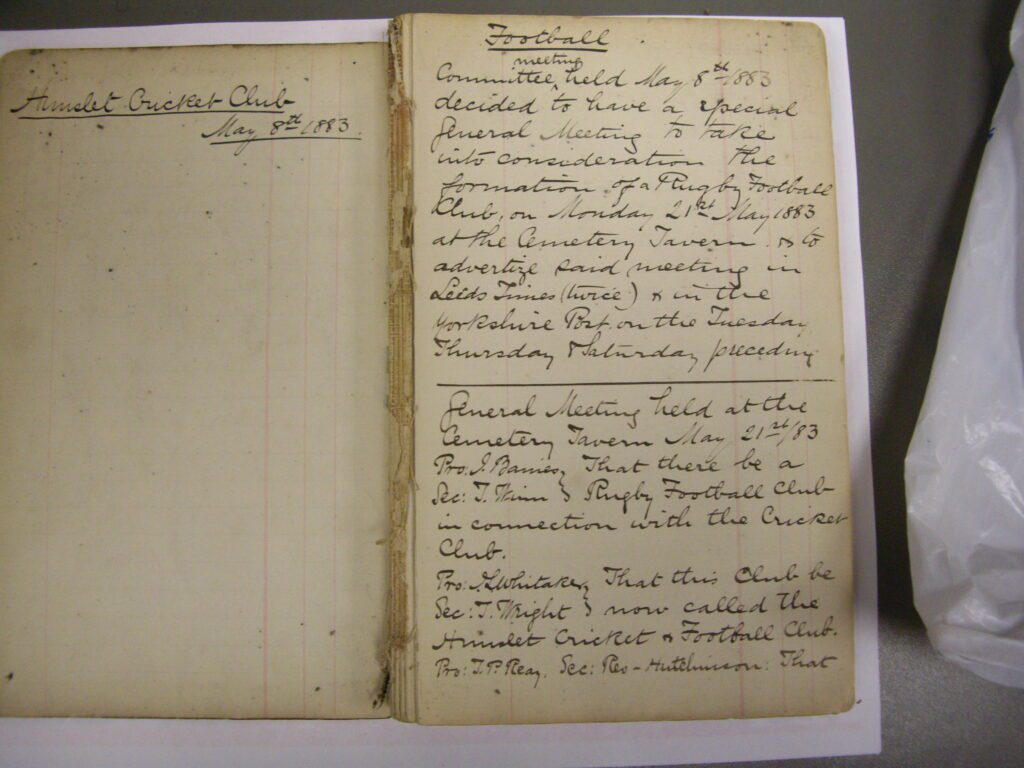 Hunslet Cricket Club
May 8th 1883.
Football
meeting
Committee, held May 8th/1883
decided to have a special
General Meeting to take
into consideration the
formation of a Rugby Football
Club, on Monday 21st May 1883
at the Cemetery Tavern & to
advertize said meeting in
Leeds Times (twice) & in the
Yorkshire Post. on the Tuesday,
Thursday & Saturday preceding
General Meeting held at the
Cemetery Tavern May 21st/83
Pro: J. That there be a
Sec: T. Rugby Football Club
in connection with the Cricket
Club.
Pro: Whitaker, That this Club be
Sec: T. Wright } now called the
Hunslet Cricket & Football Club.
Pro: T.P. Reay, Sec: Rev - Hutchinson: That